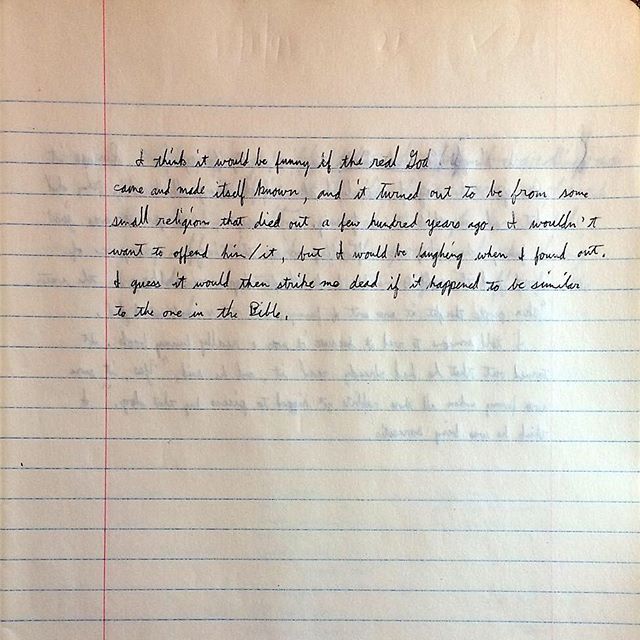 I think it would be funny if the real God
came and made itself known, and it turned out to be from some
small religion that died out a few hundred years ago. I wouldn't
want to offend him/it, but I would be laughing when I found out.
I guess it would then strike me dead if it happened to be similar
to the one in the Bible.